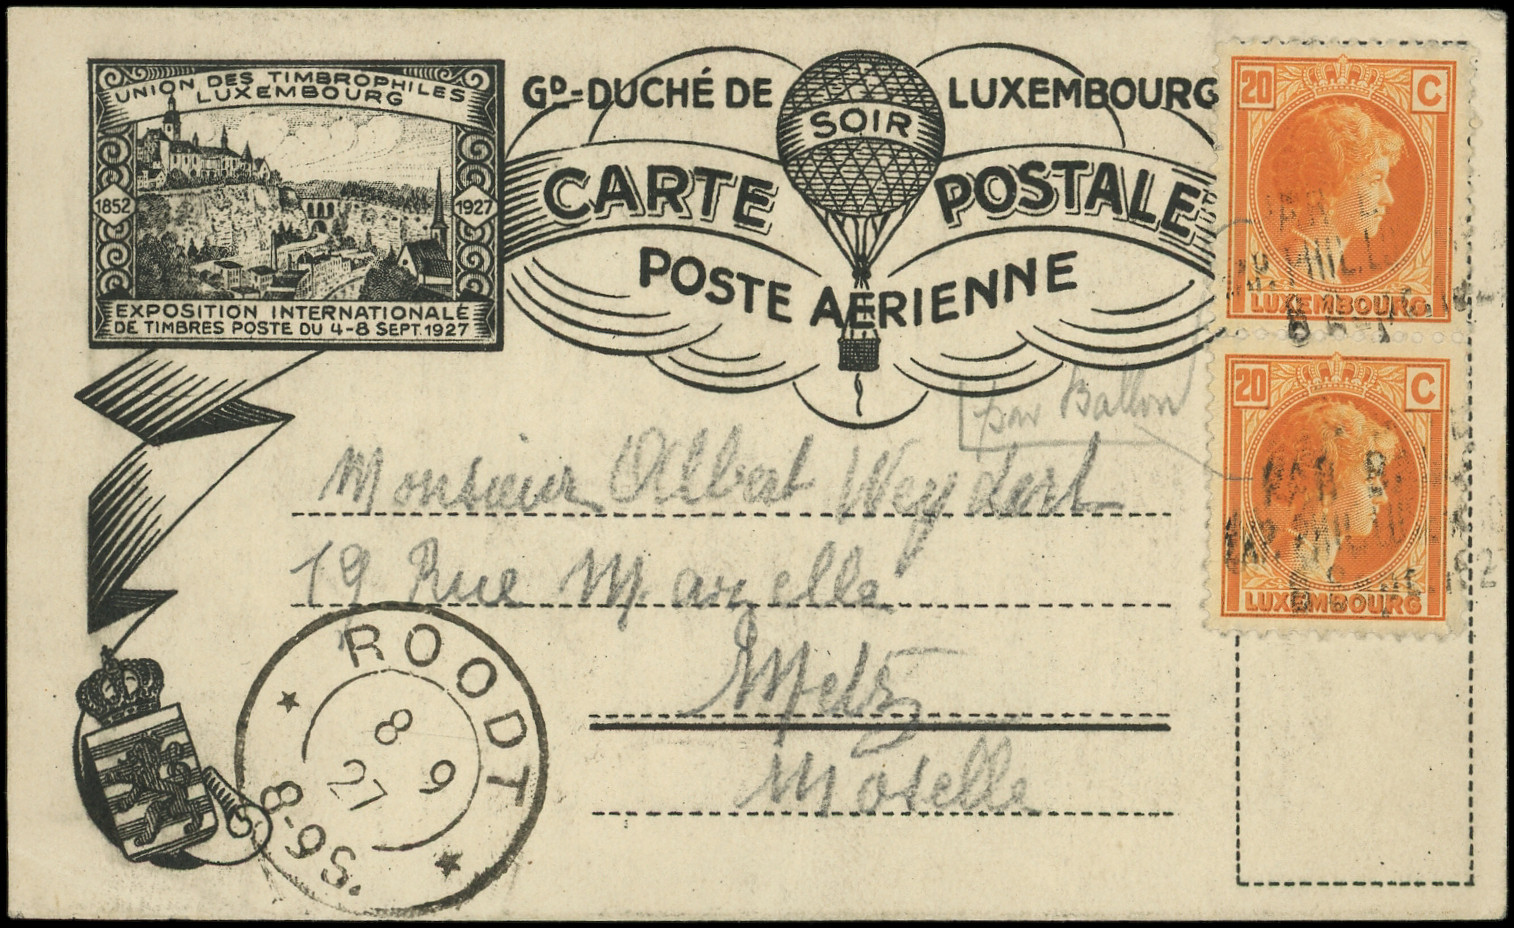 UNION DES TIMBROPHILES
LUXEMBOURG
1852
1927
EXPOSITION INTERNATIONALE
DE TIMBRES POSTE DU 4-8 SEPT. 1927
GD-DUCHÉ DE LUXEMBOURG
SOIR
CARTE POSTALE
POSTE AERIENNE
20 C
LUXEMBOURG
20 C
LUXEMBOURG
PAR
par Ballon
Monsieur Albert Weydert
19 Rue Mazelle
Metz
Moselle
ROODT
8 9
27
8-9S.